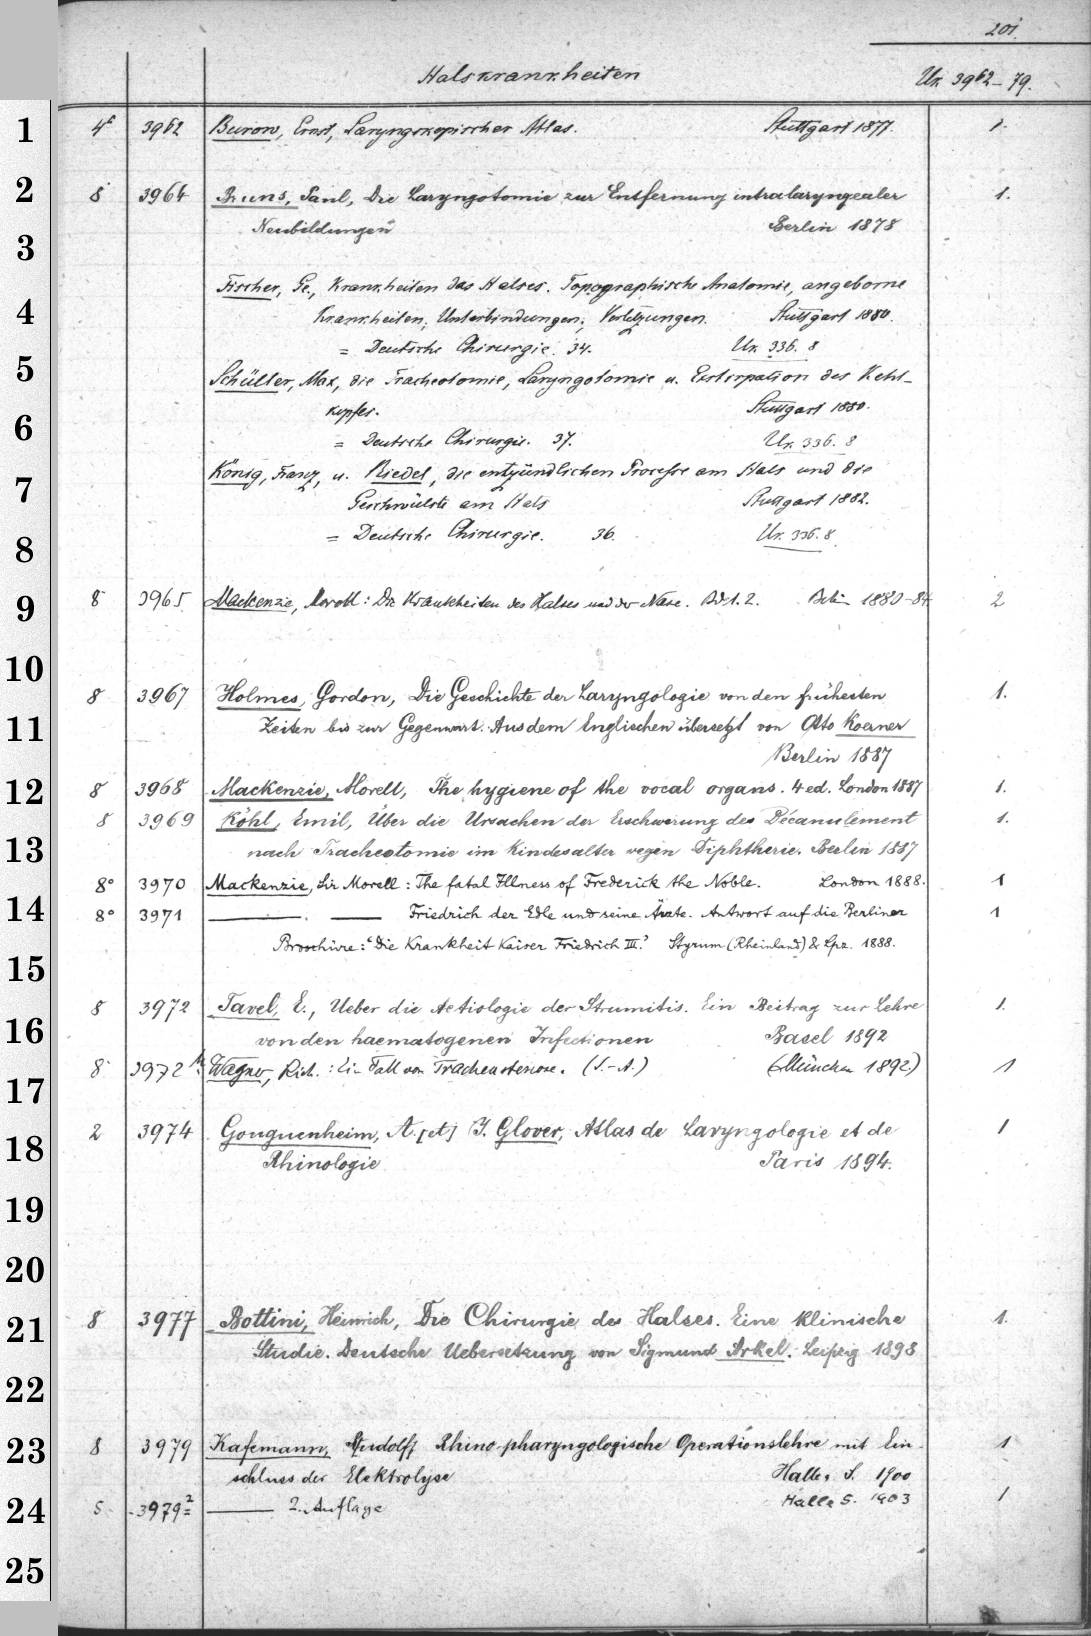 201.
Halskrankheiten Un 3962–79.
1 4° 3962 Burow, Ernst, Laryngoskopischer Atlas. Stuttgart 1877. 1.
2 8 3964 Bruns, Paul, Die Laryngotomie zur Entfernung intralaryngealer 1.
3 Neubildungen Berlin 1878
Fischer, Ge., Krankheiten des Halses. Topographische Anatomie, angeborne
4 Krankheiten, Unterbindungen, Verletzungen. Stuttgart 1880.
= Deutsche Chirurgie. 34. Un. 336. 8
5 Schüller, Max, die Tracheotomie, Laryngotomie u. Exstirpation des Kehl-
kopfes. Stuttgart 1880.
6 = Deutsche Chirurgie. 37. Un. 336. 8
König, Franz, u. Riedel, die entzündlichen Processe am Hals und die
7 Geschwülste am Hals Stuttgart 1882.
8 = Deutsche Chirurgie. 36. Un. 336. 8
9 8 3965 Mackenzie, Morell: Die Krankheiten des Halses und der Nase. Bd 1. 2. Berlin 1880–84 2
10
8 3967 Holmes, Gordon, Die Geschichte der Laryngologie von den frühesten 1.
11 Zeiten bis zur Gegenwart. Aus dem Englischen übersetzt von Otto Koerner
Berlin 1887
12 8 3968 Mackenzie, Morell, The hygiene of the vocal organs. 4 ed. London 1887 1.
8 3969 Köhl, Emil, Über die Ursachen der Erschwerung des Décanulement 1.
13 nach Tracheotomie im Kindesalter wegen Diphtherie. Berlin 1887
8° 3970 Mackenzie, Sir Morell: The fatal Illness of Frederick the Noble. London 1888. 1
14 8° 3971 ——— . —— Friedrich der Edle und seine Ärzte. Antwort auf die Berliner 1
Broschüre: "Die Krankheit Kaiser Friedrich III." Styrum (Rheinland) & Lpz. 1888.
15
8 3972 Tavel, E., Ueber die Aetiologie der Strumitis. Ein Beitrag zur Lehre 1.
16 von den haematogenen Infectionen Basel 1892
8 3972 Wagner, Rich.: Ein Fall von Trachealstenose. (S.-A.) (München 1892) 1
17
2 3974 Gouguenheim, A. [et] J. Glover, Atlas de Laryngologie et de 1
18 Rhinologie Paris 1894.
19
20
21 8 3977 Bottini, Heinrich, Die Chirurgie des Halses. Eine klinische 1.
Studie. Deutsche Uebersetzung von Sigmund Arkel. Leipzig 1898
22
23 8 3979 Kafemann, Rudolf, Rhino-pharyngologische Operationslehre mit Ein- 1
schluss der Elektrolyse Halle a. S. 1900
24 3979² —— 2. Auflage Halle S. 1903 1
25